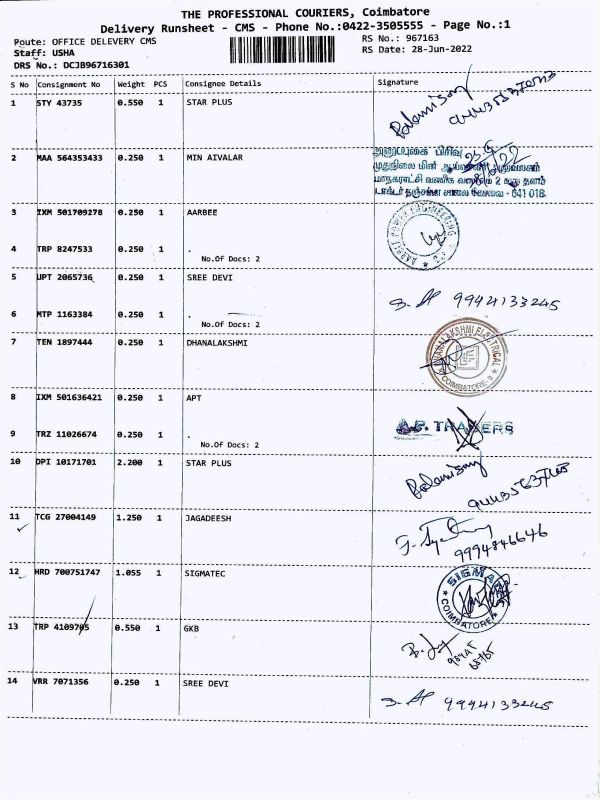 THE PROFESSIONAL COURIERS, Coimbatore
Delivery Runsheet - CMS - Phone No.:0422-3505555 - Page No.:1
Route: OFFICE DELEVERY CMS
RS No.: 967163
Staff: USHA
RS Date: 28-Jun-2022
DRS No.: DCJB96716301
S No Consignment No Weight PCS Consignee Details Signature
1 STY 43735 0.550 1 STAR PLUS
2 MAA 564353433 0.250 1 MIN AIVALAR
அனுப்புகை பிரிவு
மாநகராட்சி வணிக வளாகம் 2 வது தளம்
641 018.
3 IXM 501709278 0.250 1 AARBEE
AARBEE POWER ENGINEERING
4 TRP 8247533 0.250 1 .
No.Of Docs: 2
5 UPT 2065736 0.250 1 SREE DEVI
9944133245
6 MTP 1163384 0.250 1 .
No.Of Docs: 2
7 TEN 1897444 0.250 1 DHANALAKSHMI
DHANALAKSHMI ELECTRICAL
COIMBATORE 9
8 IXM 501636421 0.250 1 APT
A.P. TRADERS
9 TRZ 11026674 0.250 1 .
No.Of Docs: 2
10 DPI 10171701 2.200 1 STAR PLUS
11 TCG 27004149 1.250 1 JAGADEESH
9994846646
12 HRD 700751747 1.055 1 SIGMATEC
SIGMA
COIMBATORE
13 TRP 4109705 0.550 1 GKB
14 VRR 7071356 0.250 1 SREE DEVI
9944133245